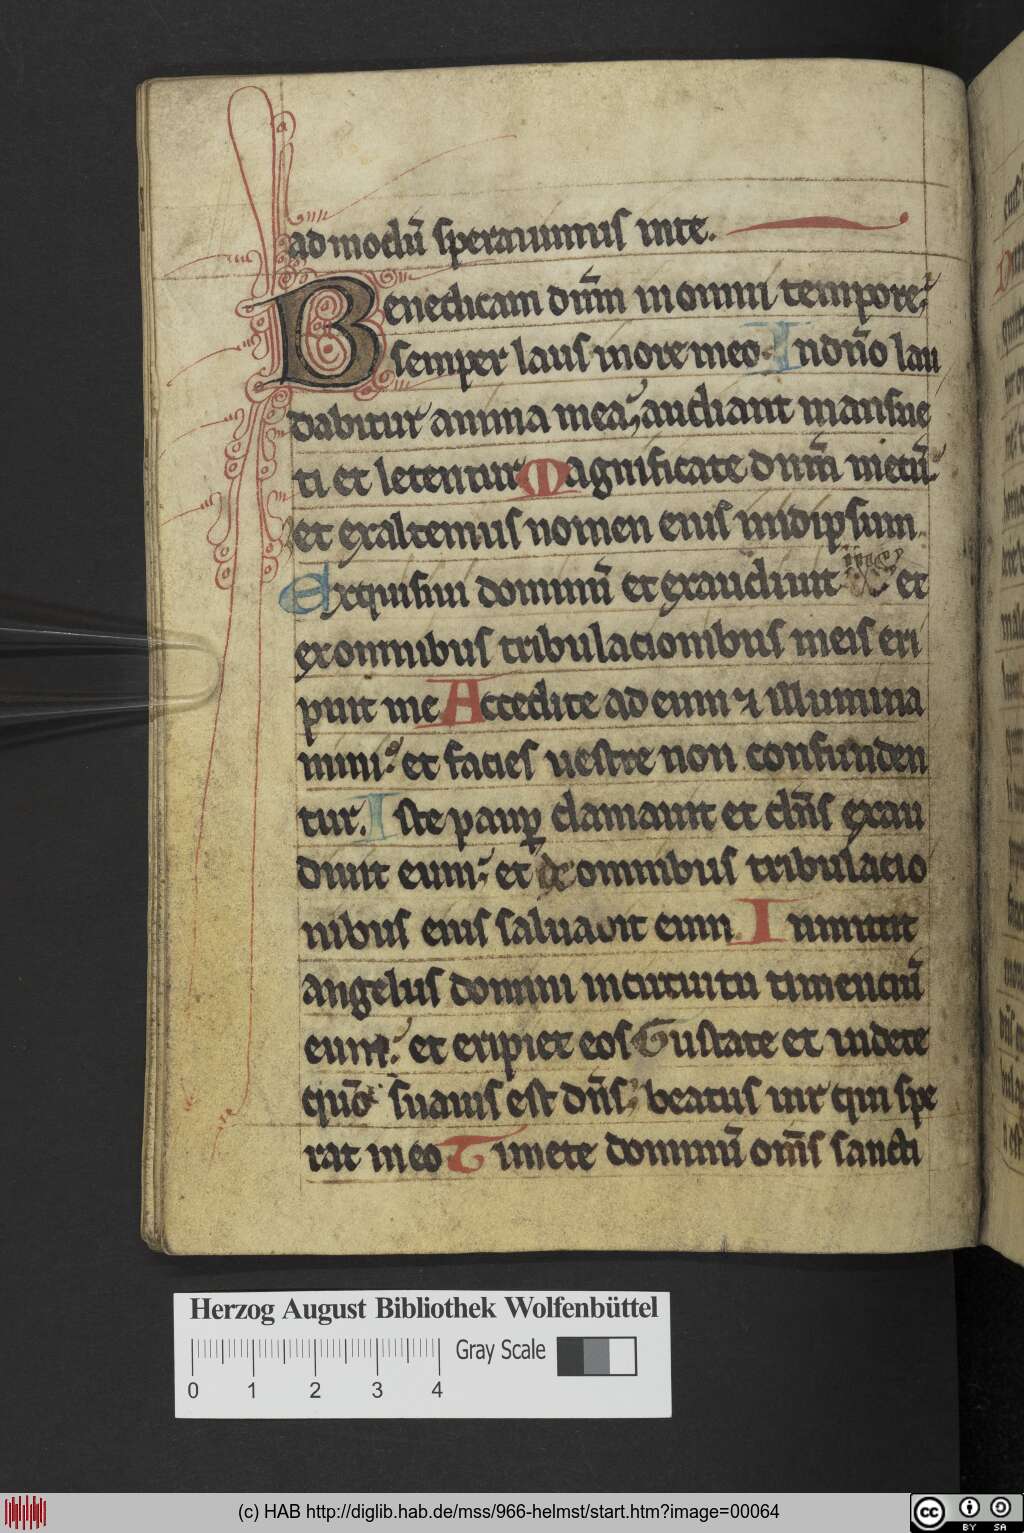 admodū sperauimus inte.
Benedicam dn̄m in omni tempore
semper laus in ore meo In dn̄o lau
dabitur anima mea audiant mansue
ti et letentur Magnificate dn̄m mecū
et exaltemus nomen eius inidipsum
Exquisiui dominū et exaudiuit me et
ex omnibus tribulacionibus meis eri
puit me Accedite ad eum ⁊ illumina
mini et facies uestre non confunden
tur. Iste paup̄ clamauit et dn̄s exau
diuit eum et de omnibus tribulacio
nibus eius saluauit eum Inmittit
angelus domini in circuitu timenciū
eum. et eripiet eos Gustate et uidete
quō suauis est dn̄s beatus uir qui spe
rat in eo Timete dominū om̄s sancti
Herzog August Bibliothek Wolfenbüttel
Gray Scale
0 1 2 3 4
(c) HAB http://diglib.hab.de/mss/966-helmst/start.htm?image=00064
cc BY SA